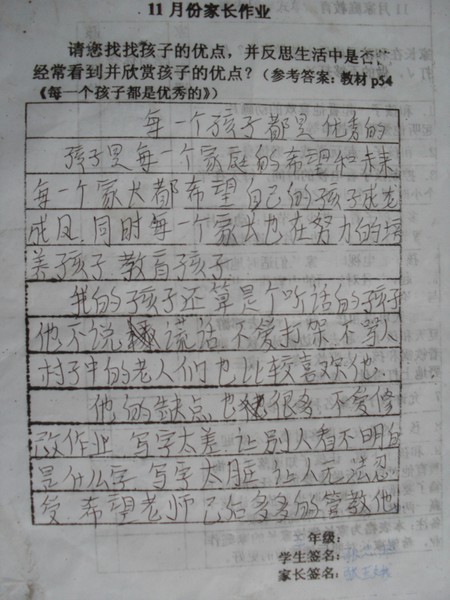 11月份家长作业
请您找找孩子的优点，并反思生活中是否
经常看到并欣赏孩子的优点？（参考答案：教材p54
《每一个孩子都是优秀的》）
每一个孩子都是优秀的
孩子是每一个家庭的希望和未来
每一个家长都希望自己的孩子成龙
成凤.同时每一个家长也在努力的培
养子孩子.教育孩子.
我的孩子还算是个听话的孩子
他不说谎话 不爱打架 不骂人
村子中的老人们也比较喜欢他.
他的缺点也很多 不爱修
改作业 写字太差.让别人看不明白
是什么字 写字太脏 让人无法忍
受.希望老师已后多多的管教他
年级：
学生签名：
家长签名：